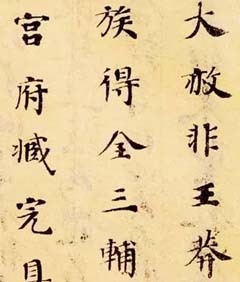 大赦非王莽
族得全三輔
宫府臧完具